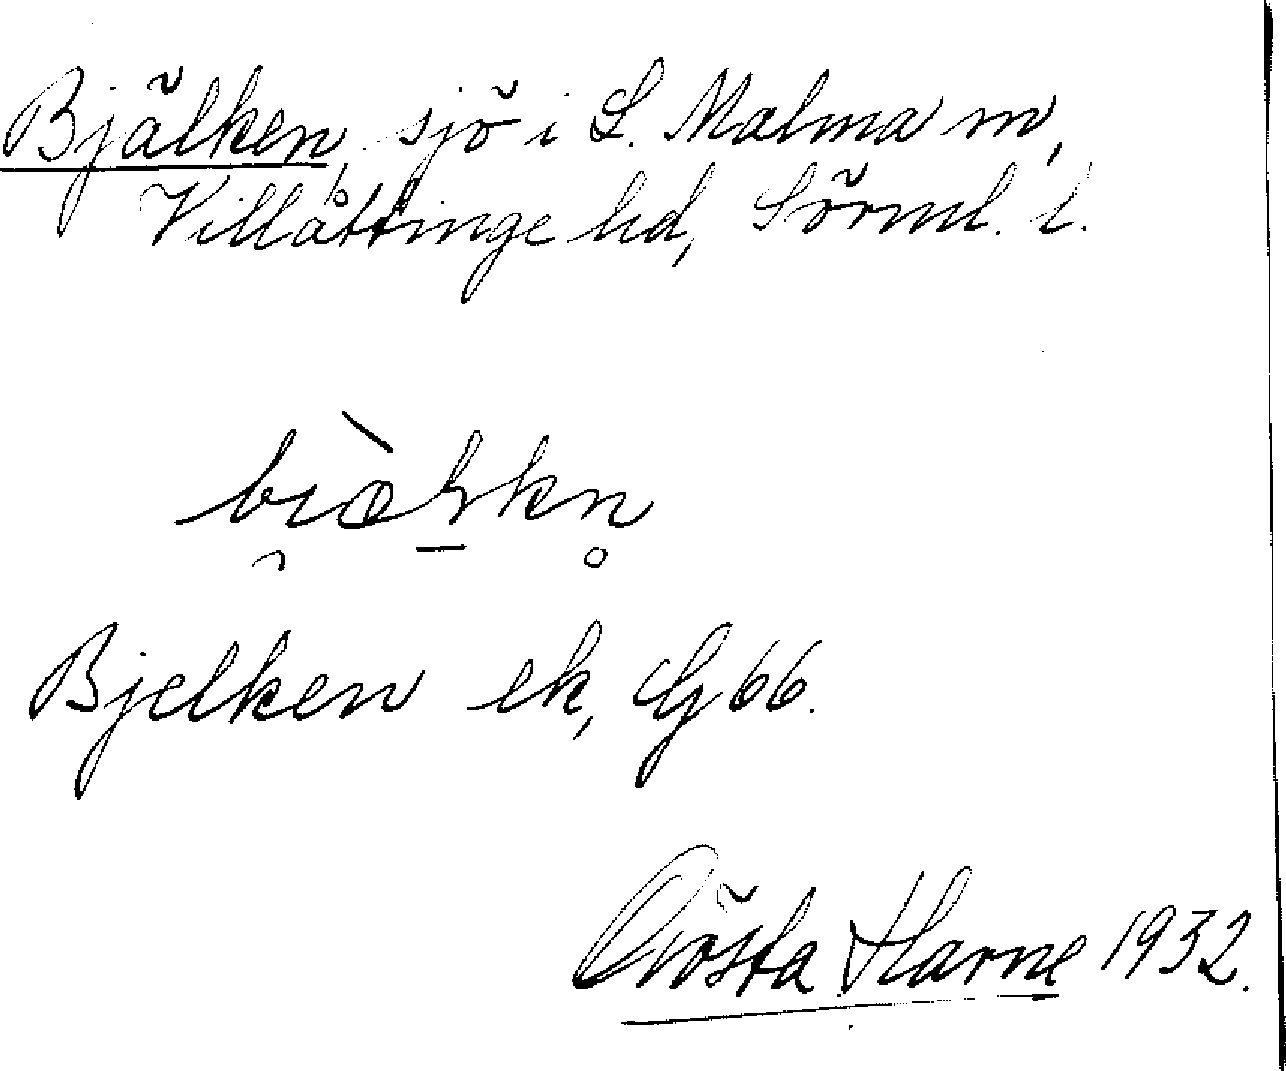 Bjälken, sjö i L. Malma sn,
Villåttinge hd, Sörml. l.
Bjelken ek, G 66.
Gösta Harne 1932.